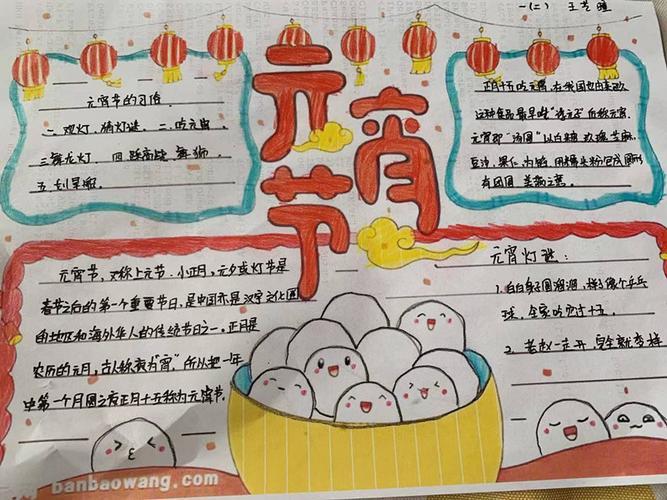 一(二) 王艺
元宵节
元宵节的习俗
一.观灯、猜灯谜、二.吃元宵、
三舞龙灯、四.踩高跷 舞狮、
五.划旱船、
正月十五吃元宵,在我国也由来已
元宵即"汤圆"以白糖 玫瑰 芝麻、
豆沙、果仁、为馅,用糯米粉包成圆形
有团圆 美满之意、
元宵节,又称上元节.小正月,元夕或灯节是
春节之后的第一个重要节日,是中国亦是汉字文化圈
的地区和海外华人的传统节日之一、正月是
农历的元月,古人称夜为"宵"所以把一年
中第一个月圆之夜正月十五称为元宵节.
元宵灯谜:
1.白白身子圆溜溜,样子像个乒乓
球,全家吃
2.
banbaowang.com